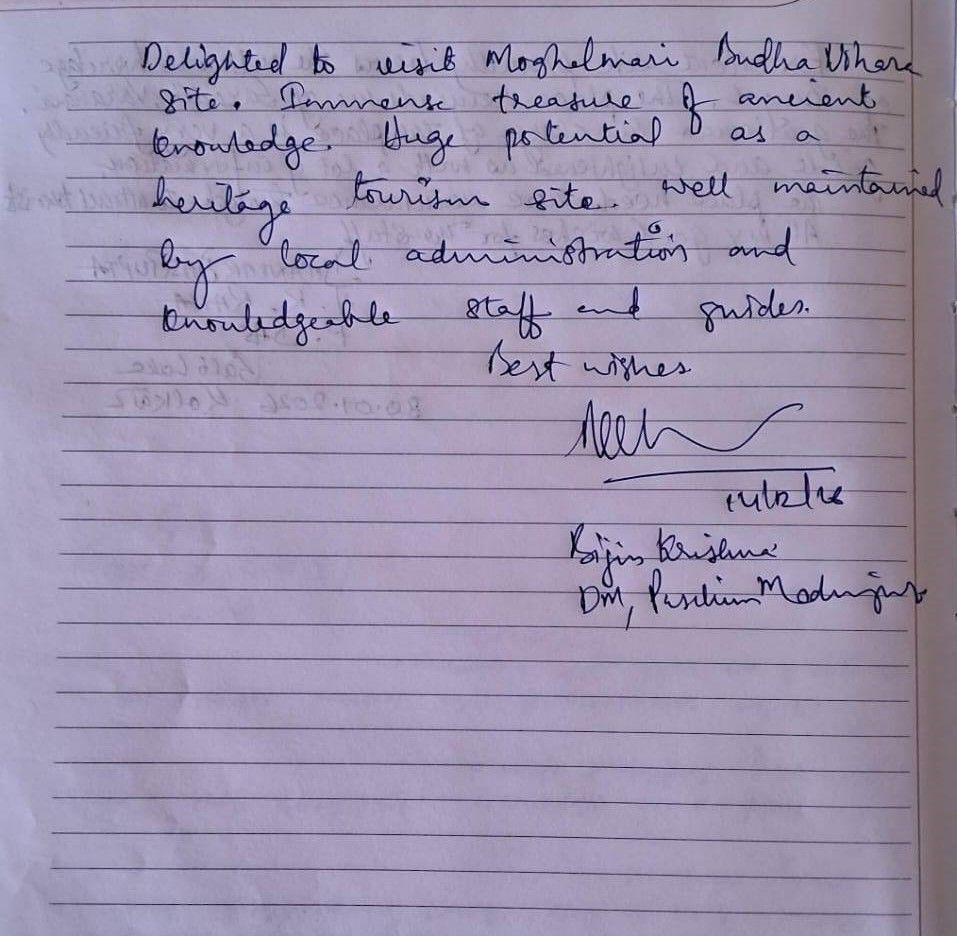 Delighted to visit Moghalmari Budha Vihara
site. Immense treasure of ancient
knowledge. Huge potential as a
heritage tourism site. Well maintained
by local administration and
knowledgeable staff and guides.
Best wishes
Bijin Krishna
DM, Paschim Medinipur